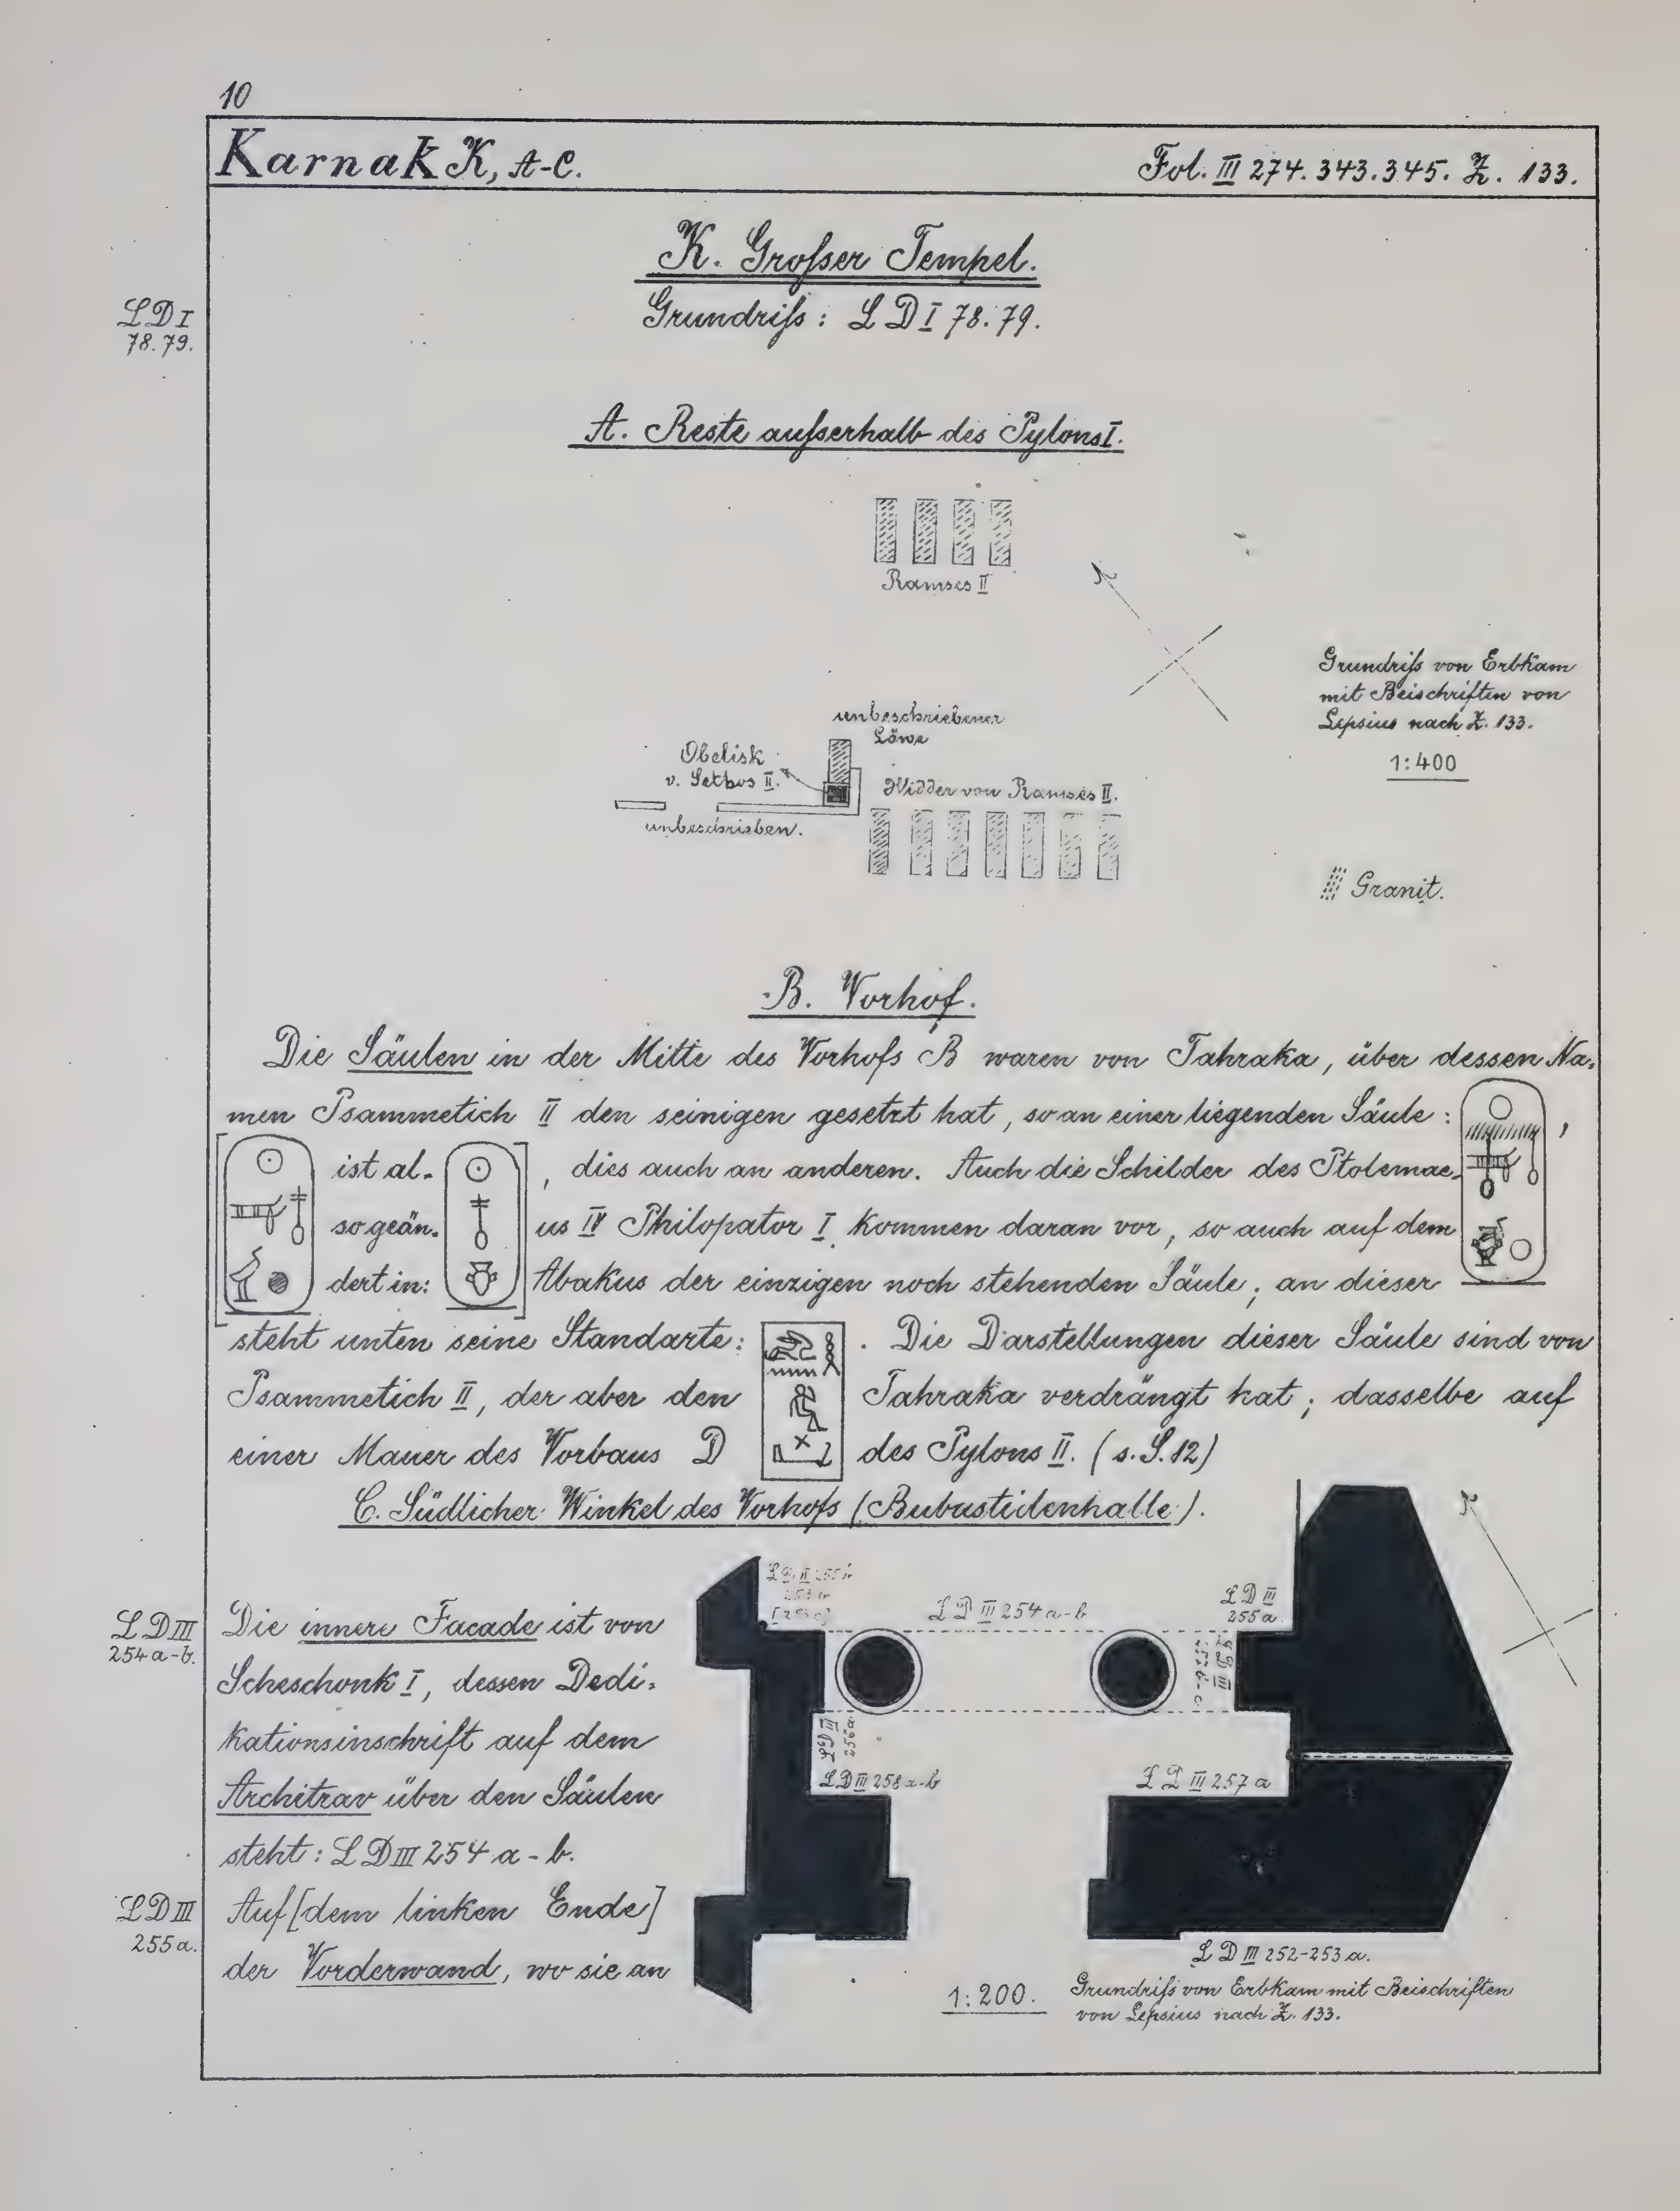 10
Karnak K, A-C.
Fol. III 274. 343. 345. Z. 133.
K. Großer Tempel.
Grundriß: L D I 78. 79.
L D I
78. 79.
A. Reste außerhalb des Pylons I.
Ramses II
Grundriß von Erbkam
mit Beischriften von
Lepsius nach Z. 133.
1:400
unbeschriebener
Löwe
Obelisk
v. Sethos II.
Widder von Ramses II.
unbeschrieben.
Granit.
B. Vorhof.
Die Säulen in der Mitte des Vorhofs B waren von Tahraka, über dessen Na-
men Psammetich II den seinigen gesetzt hat, so an einer liegenden Säule: ,
[ ist al- ], dies auch an anderen. Auch die Schilder des Ptolemae-
so geän- us IV Philopator I kommen daran vor, so auch auf dem
dert in: Abakus der einzigen noch stehenden Säule; an dieser
steht unten seine Standarte: . Die Darstellungen dieser Säule sind von
Psammetich II, der aber den Tahraka verdrängt hat; dasselbe auf
einer Mauer des Vorbaus D des Pylons II. (s. S. 12)
C. Südlicher Winkel des Vorhofs (Bubastidenhalle).
L D III
254 a-b.
Die innere Facade ist von
Scheschonk I, dessen Dedi-
kationsinschrift auf dem
Architrav über den Säulen
steht: L D III 254 a-b.
L D III
255 a.
Auf [dem linken Ende]
der Vorderwand, wo sie an
L D III 254 a-b
L D III
255 a
L D III
256 a
L D III 258 a-b
L D III 257 a
L D III 252-253 a.
1:200.
Grundriß von Erbkam mit Beischriften
von Lepsius nach Z. 133.